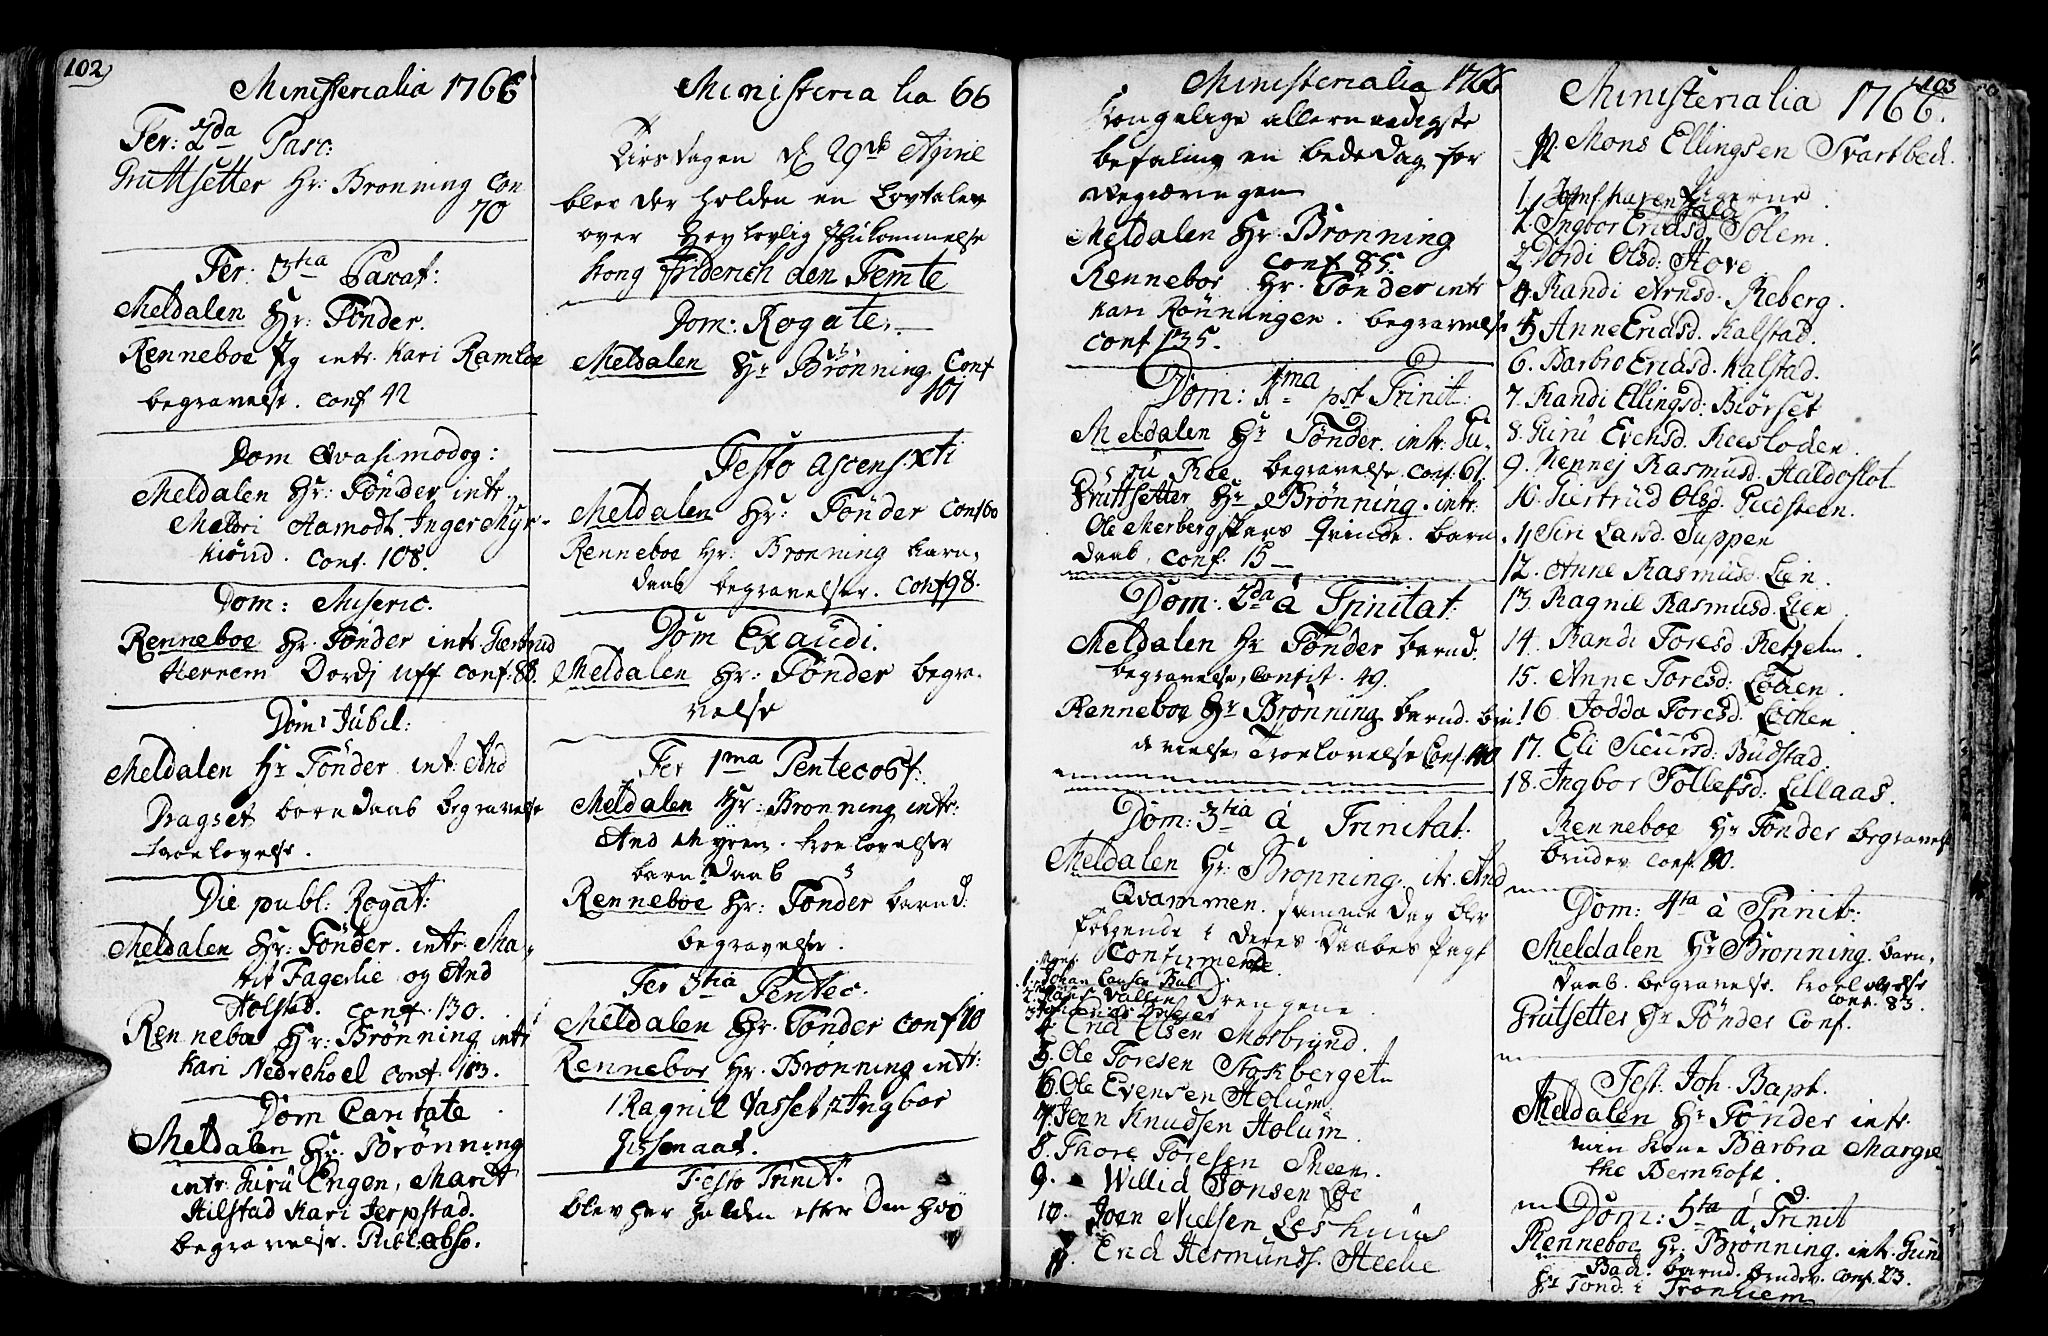 102)
Ministerialia 1766
Fer: 2da Pasc:
Gruttsetter Hr: Brønning con
70
Fer: 3tia Pascat:
Meldalen Hr: Tønder.
Renneboe Jg intr. Kari Ramloe
begravelse. conf 42
Dom Qvasimodog:
Meldalen Hr: Tønder intr.
Maldri Aamodt. Inger Myr-
conf. 108.
Dom: Miseric.
Renneboe Hr. Tønder intr. Giertrud
Herrem Dordj Uff conf: 88.
Dom: Jubil:
Meldalen Hr Tønder int: And
Dragset barn Daab begravelse
troelovelse.
Die publ: Rogat:
Meldalen Hr: Tønder. intr. Ma-
rit Fagerlie og And
Holstad. conf. 130.
Renneboe Hr: Brønning intr
Kari Nedrehoel conf. 113.
Dom Cantate
Meldalen Hr: Brønning
intr. Guru Engen, Marit
Kilstad Kari Jerpstad.
begravelse. Publ: abso.
Ministeria lia 66
Tirsdagen d 29de April
blev der holden en Lovtale
over Høylovlig Ihukommelse
Kong Friderich den Femte
Dom: Rogate.
Meldalen Hr Brønning. Conf
101
Festo Ascens. Xti
Meldalen Hr: Tønder Conf 60
Renneboe Hr: Brønning barn.
daab begravelser. Conf 98.
Dom Exaudi.
Meldalen Hr: Tønder begra-
velse
Fer 1ma Pentecost:
Meldalen Hr: Brønning intr:
And Myren. troelovelser
barn Daab 3
Renneboe Hr: Tønder barnd:
begravelse.
Fer 3tia Pentec.
Meldalen Hr. Tønder conf 10
Renneboe Hr. Brønning intr:
1 Ragnil Vasset 2 Ingbor
Festo Trinit.
blev her holden efter Den høy
Ministerialia 1766
Kongelige allernaadigste
befaling en bededag for
Regieringen
Meldalen Hr Brønning
conf 85.
Renneboe Hr. Tønder intr
Kari Rønningen. begravelse
conf 135.
Dom: 1ma pst Trinit:
Meldalen Hr Tønder. intr. Gu-
ru Ree begravelse. conf. 61.
Gruttsetter Hr Brønning. intr:
Ole Merbergskars Qvinde. barn.
daab, conf. 15
Dom: 2da á Trinitat:
Meldalen Hr Tønder barnd:
begravelse, Confit. 49.
Renneboe Hr Brønning barnd. bru-
devielse, Troelovelse Conf. 110
Dom: 3tia á Trinitat:
Meldalen Hr. Brønning. itr. And
Qvammen. samme dag blev
følgende i deres Daabes Pagt
Confirmerede.
Drengene.
4. Erid Olsen Mosbrynd.
5. Ole Toresen Stokberget
6. Ole Evensen Holum
7. Joen Knudsen Holum.
8. Thore Toresen Skeen.
9. Willid Jonsen Loe
10. Joen Nielsen Leshuus
11. Erid Hermunds. Steelie
103
Ministerialia 1766.
12. Mons Ellingsen Svartbech
Pigerne.
1. Ingbor Eridsd. Solem.
2. Dordi Olsd: Hove
4. Randi Arnsd. Reberg.
5 Anne Eridsd. Kalstad.
6. Barbro Eridsd. Kalstad.
7. Randi Ellingsd: Biørset
8. Guru Evensd. Reesloden.
9. Rennej Rasmusd. Haldoslot
10. Giertrud Olsd. Griedsteen.
11 Siri Larsd. Suppen
12. Anne Rasmusd. Lien.
13. Ragnil Rasmusd. Lien.
14. Randi Toresd. Retzelm.
15. Anne Toresd. Løchen.
16. Jodda Toresd. Løchen
17. Eli Siursd: Budstad.
18. Ingbor Tollefsd: Lillaas.
Renneboe Hr Tønder begravelse
brudev. Conf. 80.
Dom: 4ta á Trinit:
Meldalen Hr Brønning. barn-
daab. begravelse. troelovelse
conf. 83.
Grutsetter Hr Tønder Conf.
Fest. Joh. Bapt.
Meldalen Hr Tønder intr.
min Kone Barbra Margre-
the Bernhoft.
Dom: 5ta á Trinit
Renneboe Hr. Brønning. intr. Guru
Bach. barnd. brudev. conf. 23.
Hr Tønd: i Tronhiem